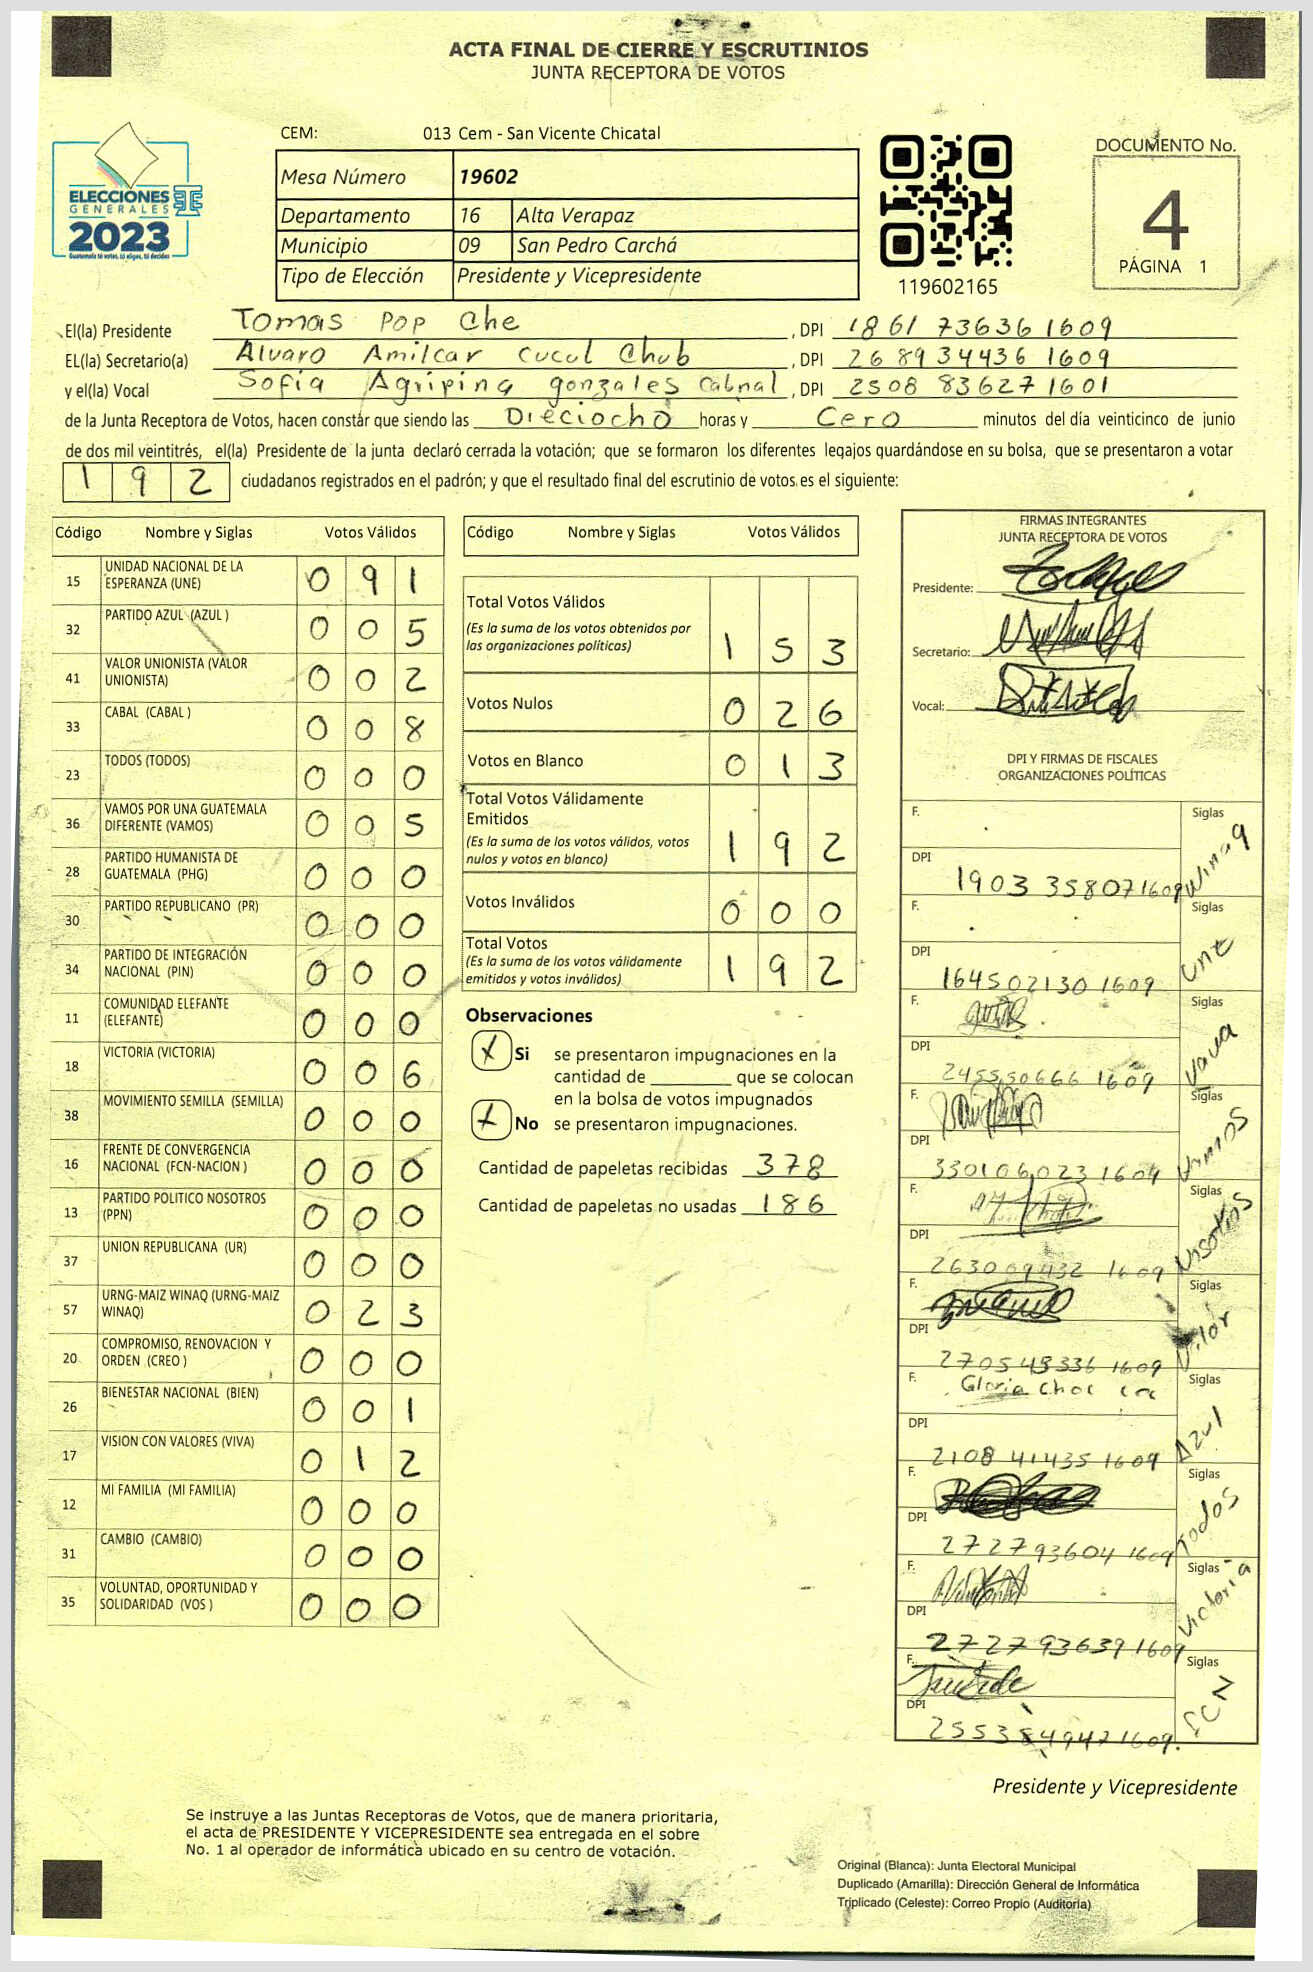 ACTA FINAL DE CIERRE Y ESCRUTINIOS
JUNTA RECEPTORA DE VOTOS
CEM: 013 Cem - San Vicente Chicatal
ELECCIONES
GENERALES
2023
Guatemala tú votas, tú eliges, tú decides
Mesa Número 19602
Departamento 16 Alta Verapaz
Municipio 09 San Pedro Carchá
Tipo de Elección Presidente y Vicepresidente
119602165
DOCUMENTO No.
4
PÁGINA 1
El(la) Presidente Tomas Pop Che , DPI 1861 73636 1609
EL(la) Secretario(a) Alvaro Amilcar cucul Chub , DPI 2689 34436 1609
y el(la) Vocal Sofia Agripina gonzales Cabnal , DPI 2508 83627 1601
de la Junta Receptora de Votos, hacen constar que siendo las Dieciocho horas y Cero minutos del día veinticinco de junio
de dos mil veintitrés, el(la) Presidente de la junta declaró cerrada la votación; que se formaron los diferentes legajos guardándose en su bolsa, que se presentaron a votar
1 9 2 ciudadanos registrados en el padrón; y que el resultado final del escrutinio de votos es el siguiente:
Código Nombre y Siglas Votos Válidos
15 UNIDAD NACIONAL DE LA ESPERANZA (UNE) 0 9 1
32 PARTIDO AZUL (AZUL ) 0 0 5
41 VALOR UNIONISTA (VALOR UNIONISTA) 0 0 2
33 CABAL (CABAL ) 0 0 8
23 TODOS (TODOS) 0 0 0
36 VAMOS POR UNA GUATEMALA DIFERENTE (VAMOS) 0 0 5
28 PARTIDO HUMANISTA DE GUATEMALA (PHG) 0 0 0
30 PARTIDO REPUBLICANO (PR) 0 0 0
34 PARTIDO DE INTEGRACIÓN NACIONAL (PIN) 0 0 0
11 COMUNIDAD ELEFANTE (ELEFANTE) 0 0 0
18 VICTORIA (VICTORIA) 0 0 6
38 MOVIMIENTO SEMILLA (SEMILLA) 0 0 0
16 FRENTE DE CONVERGENCIA NACIONAL (FCN-NACION ) 0 0 0
13 PARTIDO POLITICO NOSOTROS (PPN) 0 0 0
37 UNION REPUBLICANA (UR) 0 0 0
57 URNG-MAIZ WINAQ (URNG-MAIZ WINAQ) 0 2 3
20 COMPROMISO, RENOVACION Y ORDEN (CREO ) 0 0 0
26 BIENESTAR NACIONAL (BIEN) 0 0 1
17 VISION CON VALORES (VIVA) 0 1 2
12 MI FAMILIA (MI FAMILIA) 0 0 0
31 CAMBIO (CAMBIO) 0 0 0
35 VOLUNTAD, OPORTUNIDAD Y SOLIDARIDAD (VOS ) 0 0 0
Código Nombre y Siglas Votos Válidos
Total Votos Válidos
(Es la suma de los votos obtenidos por
las organizaciones politicas) 1 5 3
Votos Nulos 0 2 6
Votos en Blanco 0 1 3
Total Votos Válidamente
Emitidos
(Es la suma de los votos válidos, votos
nulos y votos en blanco) 1 9 2
Votos Inválidos 0 0 0
Total Votos
(Es la suma de los votos válidamente
emitidos y votos inválidos) 1 9 2
Observaciones
X Si se presentaron impugnaciones en la
cantidad de ________ que se colocan
en la bolsa de votos impugnados
X No se presentaron impugnaciones.
Cantidad de papeletas recibidas 378
Cantidad de papeletas no usadas 186
FIRMAS INTEGRANTES
JUNTA RECEPTORA DE VOTOS
Presidente:
Secretario:
Vocal:
DPI Y FIRMAS DE FISCALES
ORGANIZACIONES POLÍTICAS
F. Siglas Winaq
DPI 1903 35807 1609
F. Siglas une
DPI 164502130 1609
F. Siglas
DPI 245550666 1609
F. Siglas Vamos
DPI 330106023 1604
F. Siglas
DPI 263009432 1609
F. Siglas Valor
DPI 270545336 1609
F. Gloria Choc Siglas Azul
DPI 2108 41435 1609
F. Siglas Todos
DPI 2727 93604 1609
F. Siglas Victoria
DPI 2727 93639 1609
F. Siglas FCN
DPI 255384947 1609.
Presidente y Vicepresidente
Se instruye a las Juntas Receptoras de Votos, que de manera prioritaria,
el acta de PRESIDENTE Y VICEPRESIDENTE sea entregada en el sobre
No. 1 al operador de informática ubicado en su centro de votación.
Original (Blanca): Junta Electoral Municipal
Duplicado (Amarilla): Dirección General de Informática
Triplicado (Celeste): Correo Propio (Auditoría)